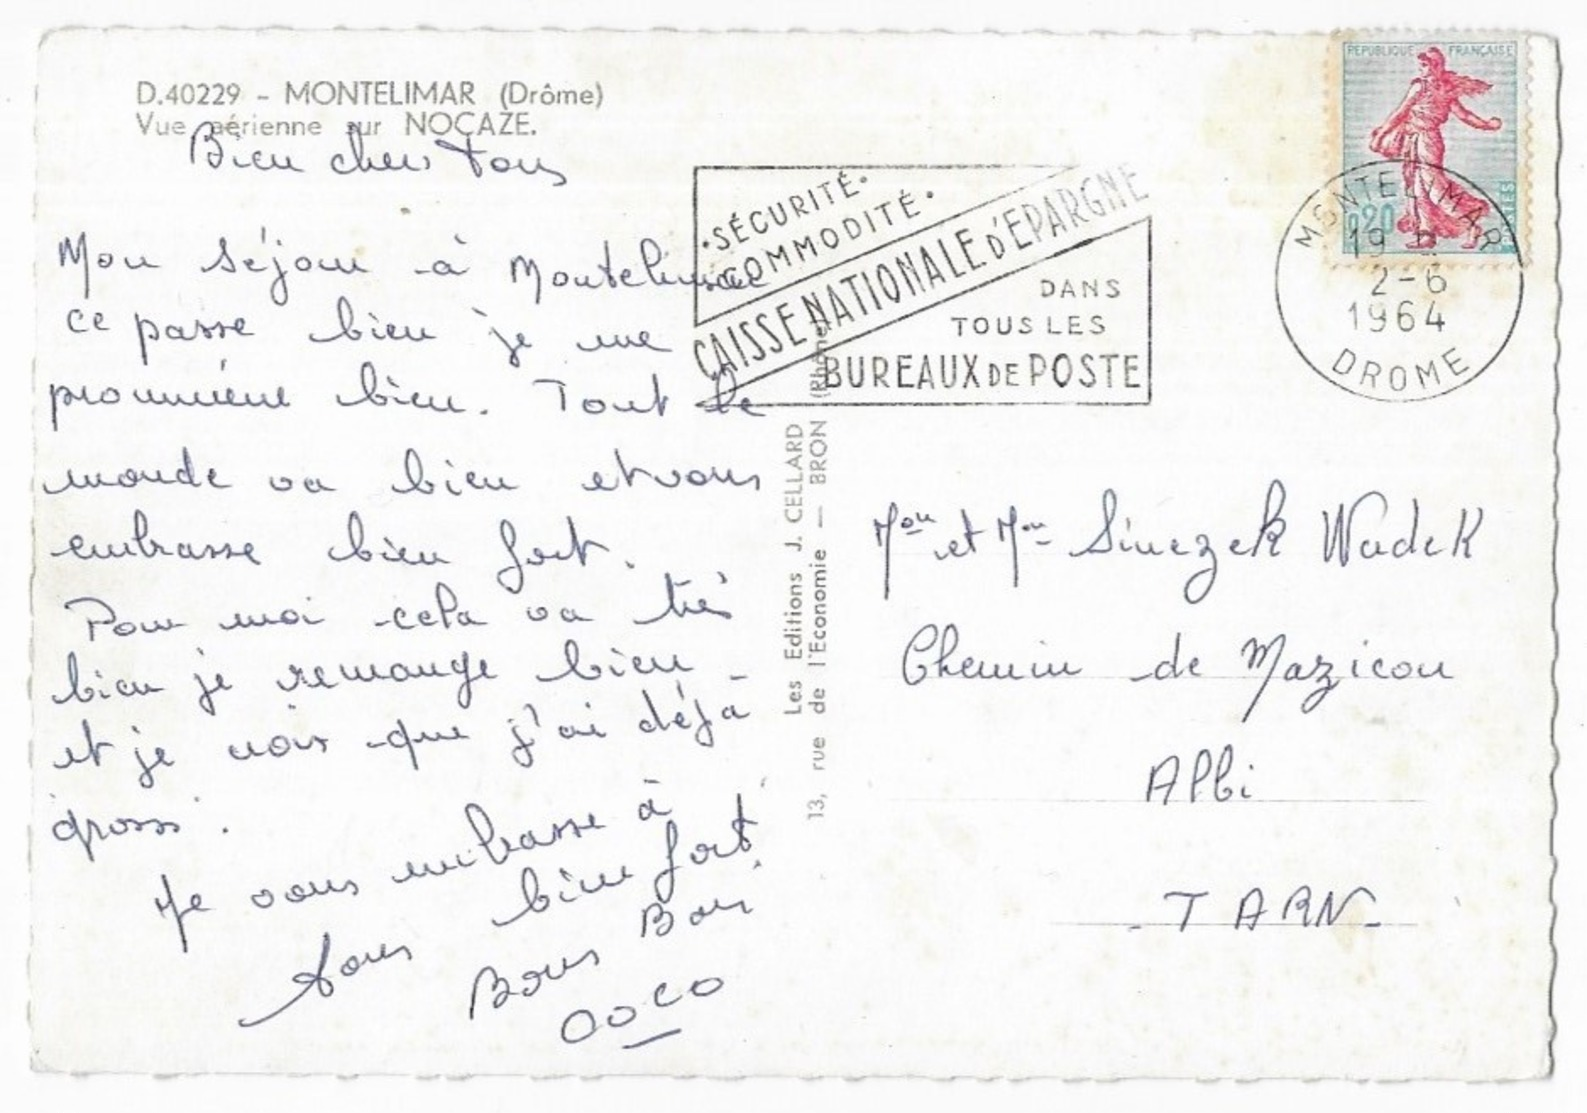 D.40229 - MONTELIMAR (Drôme)
Vue aérienne sur NOCAZE.
Bien chers Tous
Mon séjour à Montelimar
ce passe bien je me
promméne bien. Tout le
monde va bien et vous
embrasse bien fort.
Pour moi cela va très
bien je remange bien
et je crois que j'ai déjà
grossi.
Je vous embrasse à
tous bien fort.
Bons Bai
COCO
Les Editions J. CELLARD
13, rue de l'Economie — BRON (Rhône)
•SÉCURITÉ•
COMMODITÉ•
CAISSE NATIONALE D'EPARGNE
DANS
TOUS LES
BUREAUX DE POSTE
REPUBLIQUE FRANÇAISE
0,20
POSTES
MONTELIMAR
19 H
2-6
1964
DROME
Mon et Mme Sinezek Wadek
Chemin de Mazicou
Albi
- TARN -